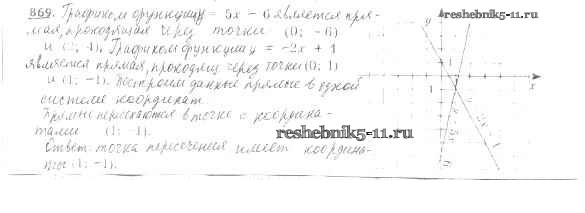 869. Графиком функции y = 5x – 6 является пря-
мая, проходящая через точки (0; -6)
и (2; 4). Графиком функции y = -2x + 1
является прямая, проходящ через точки (0; 1)
и (1; -1). Построим данные прямые в одной
системе координат.
Прямые пересекаются в точке с координа-
тами (1; -1).
Ответ: точка пересечения имеет координа-
ты (1; -1).
reshebnik5-11.ru
reshebnik5-11.ru
y
1
1
x
0